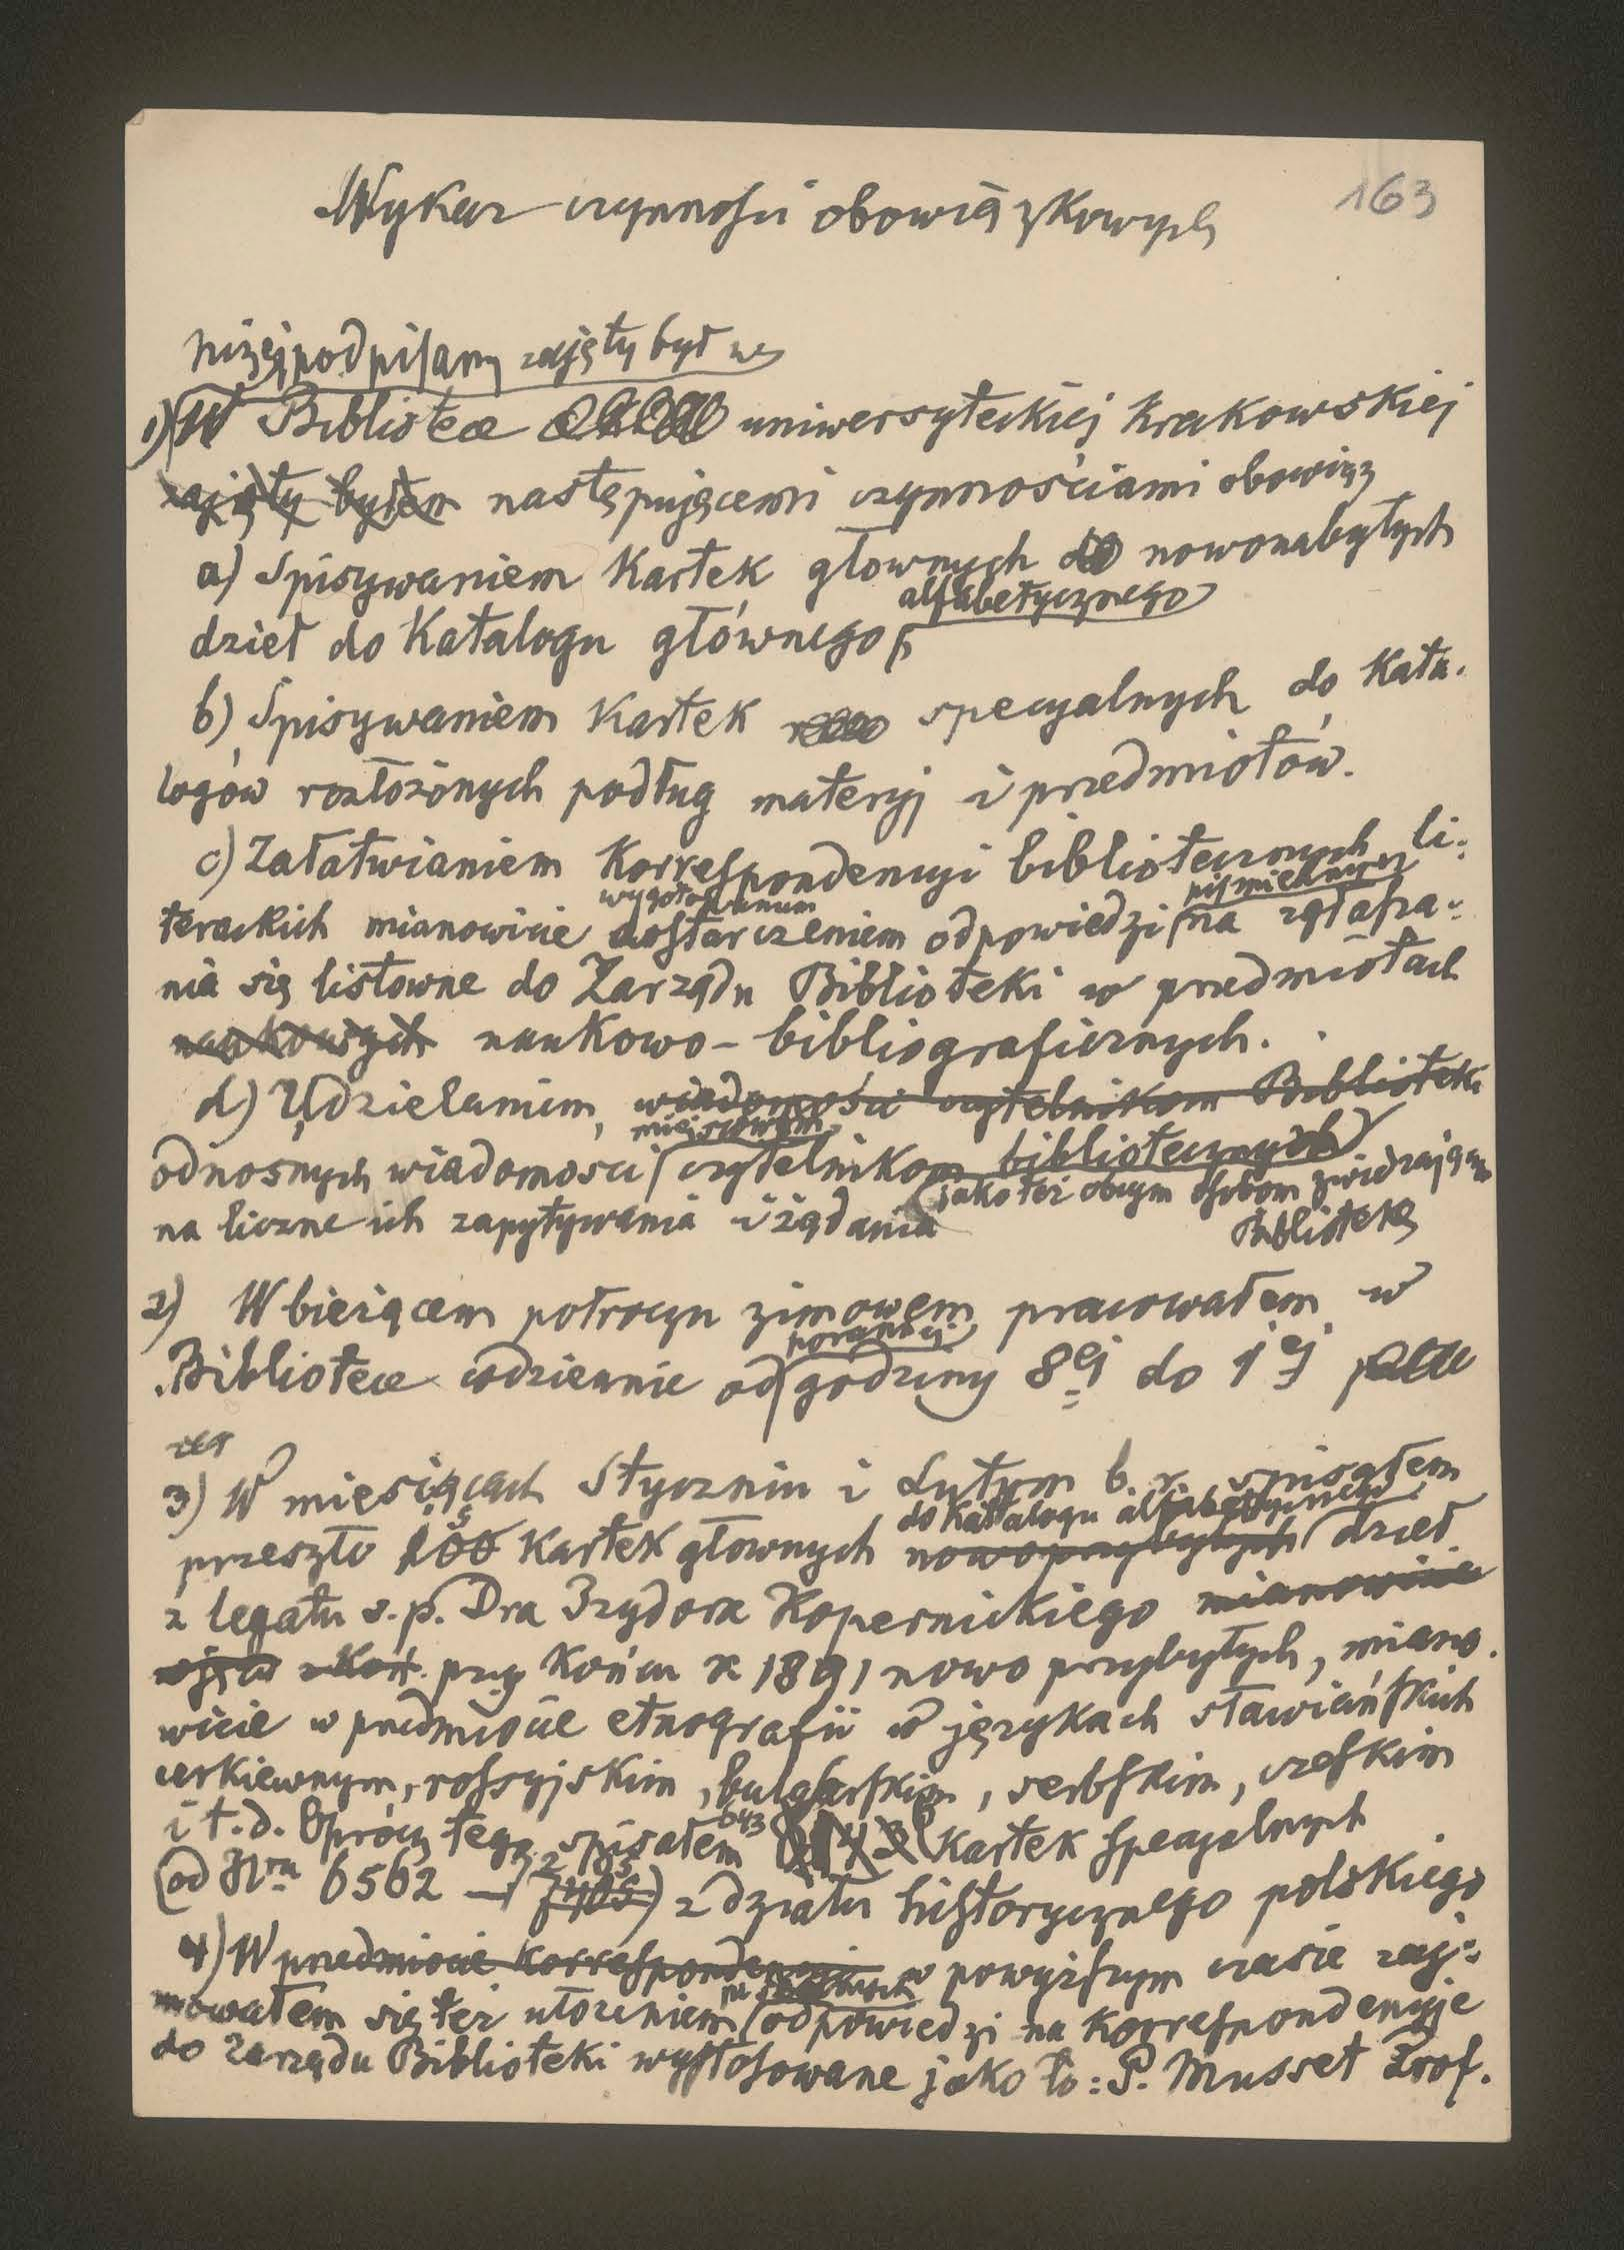 163
Wykaz czynności obowiązkowych
niżej podpisany zajęty był w
1) W Bibliotece uniwersyteckiej krakowskiej
zajęty byłem następującemi czynnościami obowiąz
a) Spisywaniem Kartek głownych do nowonabytych
alfabetycznego
dzieł do Katalogu głównego
b) Spisywaniem Kartek specyalnych do Kata-
logów rozłożonych podług materyj i przedmiotów.
c) Załatwianiem Korrespondencyi bibliotecznych li-
wygotowaniem piśmiennych
terackich mianowicie dostarczeniem odpowiedzi na zgłasza-
nia się listowne do Zarządu Biblioteki w przedmiotach
naukowych naukowo-bibliograficznych.
d) Udzielaniem, wiadomości czytelnikom Biblioteki
miejscowym
odnosnych wiadomosci czytelnikom bibliotecznych
jako też obcym osobom zwiedzającym
na liczne ich zapytywania i żądania
Bibliotekę
2) W bieżącem połroczu zimowem pracowałem w
porannej
Bibliotece codziennie od godziny 8ej do 1ej
3) W miesiącach Styczniu i Lutym b. r. spisałem
do Katalogu alfabetycznego
przeszło 800 Kartek głownych nowoprzybyłych dzieł
z legatu s. p. Dra Izydora Kopernickiego mianowicie
przy Końcu r 1891 nowo przybyłych, miano-
wicie w przedmiocie etnografii w językach sławiańskich
cerkiewnym, rossyjskim, bulgarskim, serbskim, czeskim
i t. d. Oprócz tego spisałem 643 Kartek specyalnych
(od Nru 6562 — 7205) z działu historycznego polskiego
4) W przedmiocie Korrespondencyi w powyższym czasie zaj-
mowałem się też ułożeniem odpowiedzi na Korrespondencyje
do Zarządu Biblioteki wystosowane jako to: P. Musset Prof.